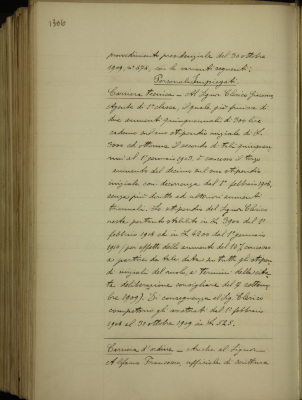 1306
provvedimento presidenziale del 30 ottobre
1909, n° 578, con le varianti seguenti:
Personale Impiegati.
Carriera tecnica — Al Signor Clerico Giacomo
Agente di 1ª classe, il quale già fruiva di
due aumenti quinquennali di 300 lire
caduno sul suo stipendio iniziale di L.
3000 ed ottenne il secondo di tali quinquen-
ni al 1° gennaio 1903, è concesso il terzo
aumento del decimo sul suo stipendio
iniziale con decorrenza dal 1° febbraio 1908,
senza più diritto ad ulteriori aumenti
triennali. Lo stipendio del Signor Clerico
resta pertanto stabilito in L. 3900 dal 1°
febbraio 1908 ed in L. 4200 dal 1° gennaio
1910 (per effetto dell'aumento del 10% concesso
a partire da tale data su tutti gli stipen-
di iniziali del ruolo, a termini della cita-
ta deliberazione consigliare del 9 settem-
bre 1909). Di conseguenza al Sig. Clerico
competono gli arretrati dal 1° febbraio
1908 al 30 ottobre 1909 in L. 525.
Carriera d'ordine — Anche al Signor
Alifano Francesco, ufficiale di scrittura